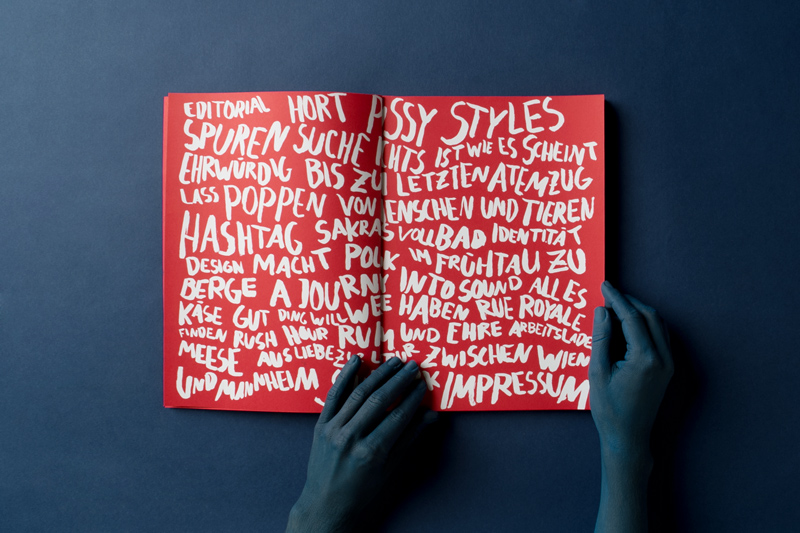 EDITORIAL HORT STYLES
SPUREN SUCHE NICHTS IST WIE ES SCHEINT
EHRWÜRDIG BIS ZUM LETZTEN ATEMZUG
LASS POPPEN VON MENSCHEN UND TIEREN
HASHTAG VOLLBAD IDENTITÄT
DESIGN MACHT IM FRÜHTAU ZU
BERGE A JOURNEY INTO SOUND ALLES
KÄSE GUT DING WILL WEILE HABEN RUE ROYALE
FINDEN RUSH HOUR RUHM UND EHRE
MEESE AUS LIEBE ZWISCHEN WIEN
UND MANNHEIM IMPRESSUM